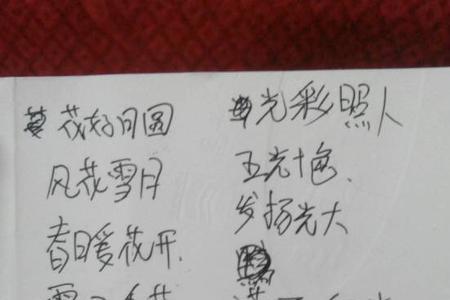 花好月圆
风花雪月
春暖花开.
光彩照人
五光十色、
发扬光大